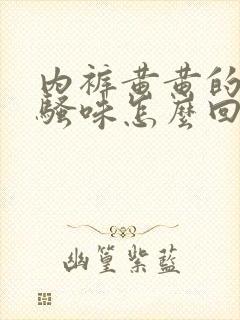 内裤黄黄的
骚味怎麼回
幽篁紫藍